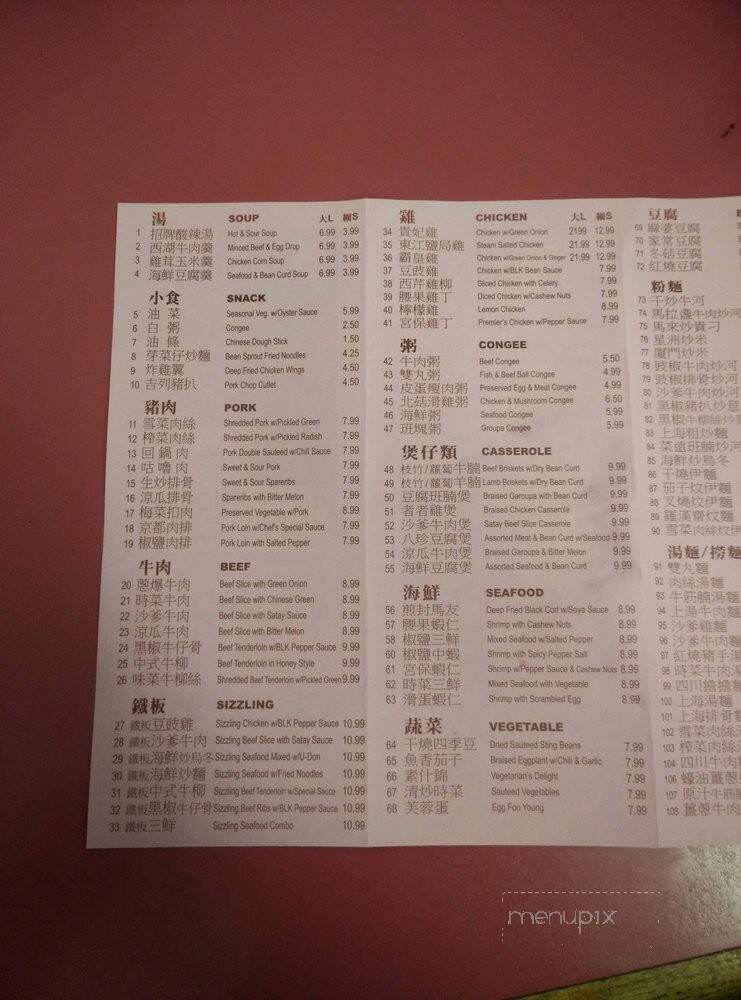 湯 SOUP 大L 細S
1 招牌酸辣湯 Hot & Sour Soup 6.99 3.99
2 西湖牛肉羹 Minced Beef & Egg Drop 6.99 3.99
3 雞茸玉米羹 Chicken Corn Soup 6.99 3.99
4 海鮮豆腐羹 Seafood & Bean Curd Soup 6.99 3.99
小食 SNACK
5 油菜 Seasonal Veg. w/Oyster Sauce 5.99
6 白粥 Congee 2.50
7 油條 Chinese Dough Stick 1.50
8 芽菜仔炒麵 Bean Sprout Fried Noodles 4.25
9 炸雞翼 Deep Fried Chicken Wings 4.50
10 吉列豬扒 Pork Chop Cutlet 4.50
豬肉 PORK
11 雪菜肉絲 Shredded Pork w/Pickled Green 7.99
12 榨菜肉絲 Shredded Pork w/Pickled Radish 7.99
13 回鍋肉 Pork Double Sauteed w/Chill Sauce 7.99
14 咕嚕肉 Sweet & Sour Pork 7.99
15 生炒排骨 Sweet & Sour Spareribs 7.99
16 涼瓜排骨 Spareribs with Bitter Melon 7.99
17 梅菜扣肉 Preserved Vegetable w/Pork 8.99
18 京都肉排 Pork Loin w/Chef's Special Sauce 7.99
19 椒鹽肉排 Pork Loin with Salted Pepper 7.99
牛肉 BEEF
20 蔥爆牛肉 Beef Slice with Green Onion 8.99
21 時菜牛肉 Beef Slice with Chinese Green 8.99
22 沙爹牛肉 Beef Slice with Satay Sauce 8.99
23 涼瓜牛肉 Beef Slice with Bitter Melon 8.99
24 黑椒牛仔骨 Beef Tenderloin w/BLK Pepper Sauce 9.99
25 中式牛柳 Beef Tenderloin in Honey Style 9.99
26 味菜牛柳絲 Shredded Beef Tenderloin w/Pickled Green 9.99
鐵板 SIZZLING
27 鐵板豆豉雞 Sizzling Chicken w/BLK Pepper Sauce 10.99
28 鐵板沙爹牛肉 Sizzling Beef Slice with Satay Sauce 10.99
29 鐵板海鮮炒烏冬 Sizzling Seafood Mixed w/U-Don 10.99
30 鐵板海鮮炒麵 Sizzling Seafood w/Fried Noodles 10.99
31 鐵板中式牛柳 Sizzling Beef Tenderloin w/Special Sauce 10.99
32 鐵板黑椒牛仔骨 Sizzling Beef Ribs w/BLK Pepper Sauce 10.99
33 鐵板三鮮 Sizzling Seafood Combo 10.99
雞 CHICKEN 大L 細S
34 貴妃雞 Chicken w/Green Onion 21.99 12.99
35 東江鹽局雞 Steam Salted Chicken 21.99 12.99
36 霸皇雞 Chicken w/Green Onion & Ginger 21.99 12.99
37 豆豉雞 Chicken w/BLK Bean Sauce 7.99
38 西芹雞柳 Sliced Chicken with Celery 7.99
39 腰果雞丁 Diced Chicken w/Cashew Nuts 7.99
40 檸檬雞 Lemon Chicken 8.99
41 宮保雞丁 Premier's Chicken w/Pepper Sauce 7.99
粥 CONGEE
42 牛肉粥 Beef Congee 5.50
43 雙丸粥 Fish & Beef Ball Congee 4.99
44 皮蛋瘦肉粥 Preserved Egg & Meat Congee 4.99
45 北菇滑雞粥 Chicken & Mushroom Congee 6.50
46 海鮮粥 Seafood Congee 5.99
47 班塊粥 Groupa Congee 5.99
煲仔類 CASSEROLE
48 枝竹/蘿蔔牛腩 Beef Briskets w/Dry Bean Curd 9.99
49 枝竹/蘿蔔羊腩 Lamb Briskets w/Dry Bean Curd 9.99
50 豆腐班腩煲 Braised Garoupa with Bean Curd 9.99
51 者者雞煲 Braised Chicken Casserole 9.99
52 沙爹牛肉煲 Satay Beef Slice Casserole 9.99
53 八珍豆腐煲 Assorted Meat & Bean Curd w/Seafood 9.99
54 涼瓜牛肉煲 Braised Garoupa & Bitter Melon 9.99
55 海鮮豆腐煲 Assorted Seafood & Bean Curd 9.99
海鮮 SEAFOOD
56 煎封馬友 Deep Fried Black Cod w/Soya Sauce 8.99
57 腰果蝦仁 Shrimp with Cashew Nuts 8.99
58 椒鹽三鮮 Mixed Seafood w/Salted Pepper 8.99
60 椒鹽中蝦 Shrimp with Spicy Pepper Salt 8.99
61 宮保蝦仁 Shrimp w/Pepper Sauce & Cashew Nuts 8.99
62 時菜三鮮 Mixed Seafood with Vegetable 8.99
63 滑蛋蝦仁 Shrimp with Scrambled Egg 8.99
蔬菜 VEGETABLE
64 干燒四季豆 Dried Sauteed Sting Beans 7.99
65 魚香茄子 Braised Eggplant w/Chili & Garlic 7.99
66 素什錦 Vegetarian's Delight 7.99
67 清炒時菜 Sauteed Vegetables 7.99
68 芙蓉蛋 Egg Foo Young 7.99
豆腐
69 麻婆豆腐
70 家常豆腐
71 冬菇豆腐
72 紅燒豆腐
粉麵
73 干炒牛河
74 馬拉盞牛肉炒河
75 馬來炒貴刁
76 星洲炒米
77 廈門炒米
78 豉椒牛肉炒河
79 豉椒排骨炒河
80 沙爹牛肉炒河
81 黑椒豬扒炒意
82 黑椒牛柳絲炒
83 上海粗炒麵
84 菜遠班腩炒河
85 海鮮炒烏冬
86 干燒伊麵
87 茄子炆伊麵
88 叉燒炆伊麵
89 羅漢齋炆麵
90 雪菜肉絲炆伊
湯麵/撈麵
91 雙丸麵
92 肉絲湯麵
93 牛筋腩湯麵
94 上湯牛肉麵
95 沙爹雞麵
96 沙爹牛肉麵
97 紅燒豬手湯
98 時菜牛肉湯
99 四川擔擔麵
100 上海湯麵
101 上海排骨麵
102 雪菜肉絲湯
103 榨菜肉絲湯
104 四川牛肉麵
106 蠔油薑蔥
107 原汁牛筋腩
108 薑蔥牛肉
menupix